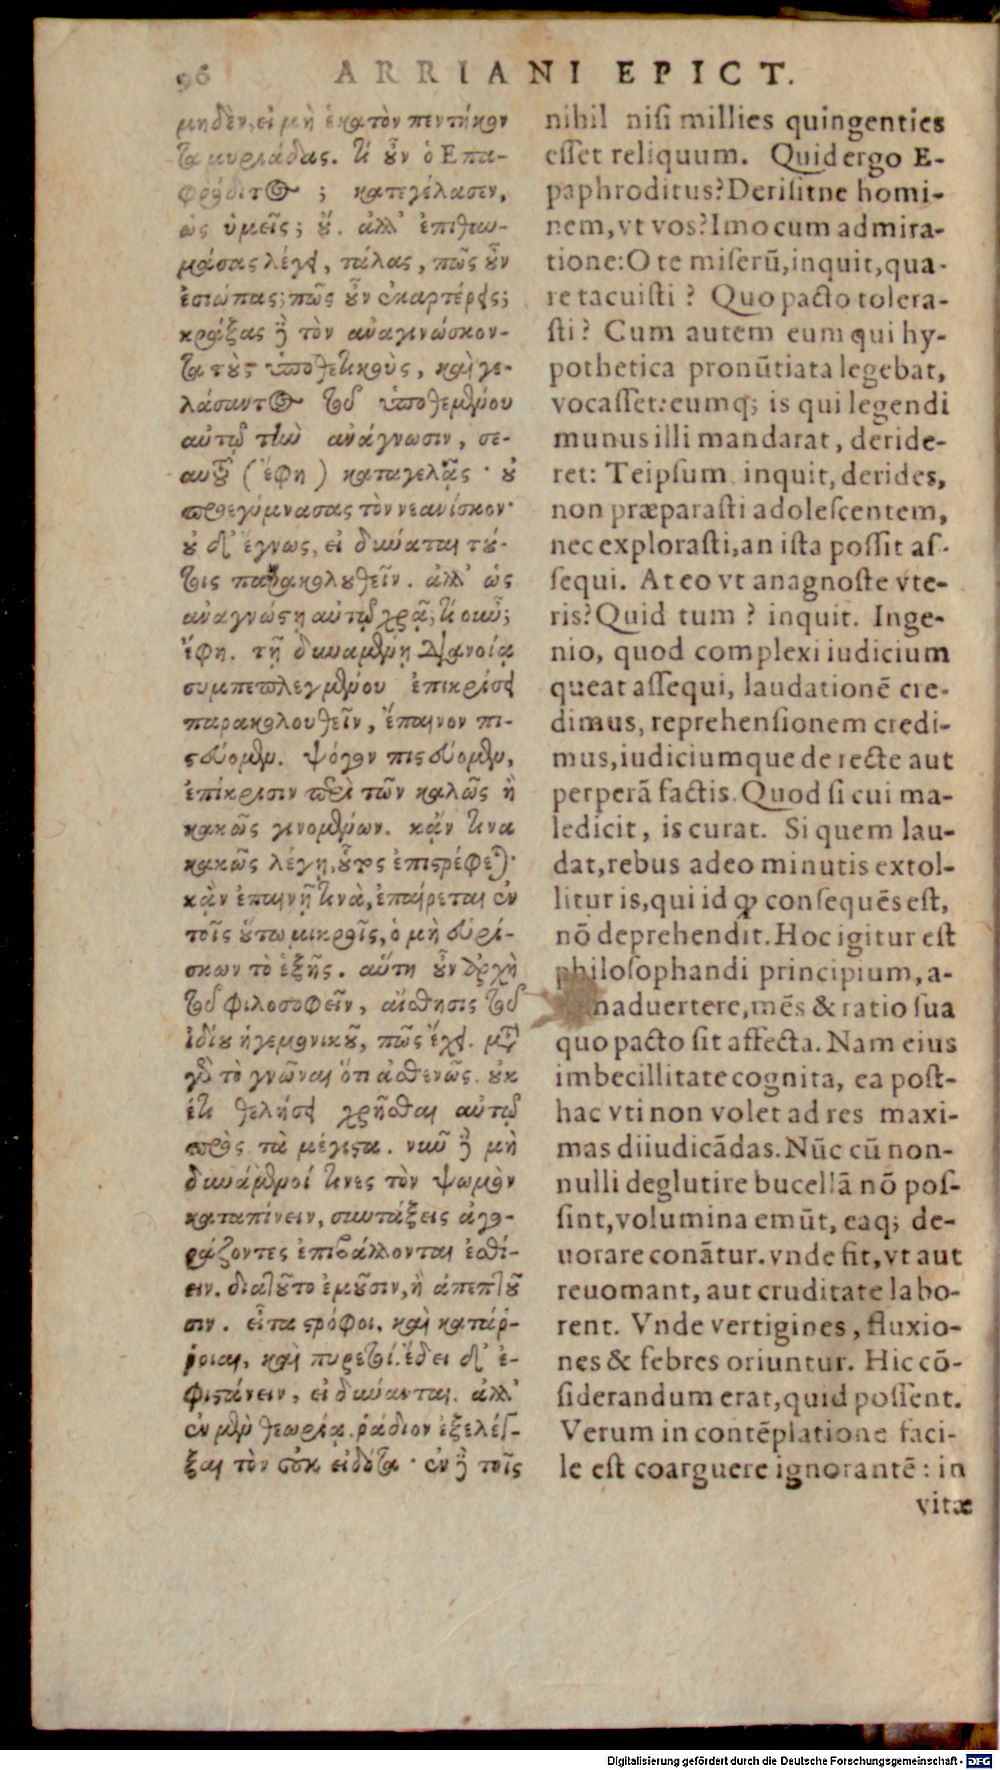 96 ARRIANI EPICT.
μηδὲν, εἰ μὴ ἑκατὸν πεντήκον
τα μυριάδας. τί οὖν ὁ Επα-
φρόδιτος ; κατεγέλασεν,
ὡς ὑμεῖς; οὔ. ἀλλ' ἐπιθαυ-
μάσας λέγει, τάλας, πῶς οὖν
ἐσιώπας; πῶς οὖν ἐκαρτέρεις;
κράξας δὲ τὸν ἀναγινώσκον-
τα τοὺς ὑποθετικοὺς, καὶ γε-
λάσαντος τοῦ ὑποθεμένου
αὐτῷ τὴν ἀνάγνωσιν, σε-
αυτοῦ (ἔφη) καταγελᾷς · οὐ
προεγύμνασας τὸν νεανίσκον·
οὐ δ' ἔγνως, εἰ δύναται τού-
τοις παρακολουθεῖν. ἀλλ' ὡς
ἀναγνώστῃ αὐτῷ χρᾷ; τί οὖν;
ἔφη. τῇ δυναμένῃ διανοίᾳ
συμπεπλεγμένου ἐπικρίσει
παρακολουθεῖν, ἔπαινον πι-
στεύομεν. ψόγον πιστεύομεν,
ἐπίκρισιν περὶ τῶν καλῶς ἢ
κακῶς γινομένων. κἄν τινα
κακῶς λέγῃ, οὗτος ἐπιστρέφεται·
κἂν ἐπαινῇ τινὰ, ἐπαίρεται ἐν
τοῖς οὕτω μικροῖς, ὁ μὴ εὑρί-
σκων τὸ ἑξῆς. αὕτη οὖν ἀρχὴ
τοῦ φιλοσοφεῖν, αἴσθησις τοῦ
ἰδίου ἡγεμονικοῦ, πῶς ἔχει. μετὰ
γὰρ τὸ γνῶναι ὅτι ἀσθενῶς. οὐκ
ἔτι θελήσει χρῆσθαι αὐτῷ
πρὸς τὰ μέγιστα. νῦν δὲ μὴ
δυνάμενοί τινες τὸν ψωμὸν
καταπίνειν, συντάξεις ἀγο-
ράζοντες ἐπιβάλλονται ἐσθί-
ειν. διατοῦτο ἐμοῦσιν, ἢ ἀπεπτοῦ
σιν. εἶτα στρόφοι, καὶ κατάρ-
ροιαι, καὶ πυρετοί. ἔδει δ' ἐ-
φιστάνειν, εἰ δύνανται. ἀλλ'
ἐν μὲν θεωρίᾳ ῥᾴδιον ἐξελέγ-
ξαι τὸν οὐκ εἰδότα · ἐν δὲ τοῖς
nihil nisi millies quingenties
esset reliquum. Quid ergo E-
paphroditus? Derisitne homi-
nem, vt vos? Imo cum admira-
tione: O te miserū, inquit, qua-
re tacuisti ? Quo pacto tolera-
sti ? Cum autem eum qui hy-
pothetica pronūtiata legebat,
vocasset: eumq; is qui legendi
munus illi mandarat, deride-
ret: Teipsum inquit, derides,
non præparasti adolescentem,
nec explorasti, an ista possit as-
sequi. At eo vt anagnoste vte-
ris? Quid tum ? inquit. Inge-
nio, quod complexi iudicium
queat assequi, laudationē cre-
dimus, reprehensionem credi-
mus, iudiciumque de recte aut
perperā factis. Quod si cui ma-
ledicit, is curat. Si quem lau-
dat, rebus adeo minutis extol-
litur is, qui id ꝙ consequēs est,
nō deprehendit. Hoc igitur est
philosophandi principium, a-
naduertere, mēs & ratio sua
quo pacto sit affecta. Nam eius
imbecillitate cognita, ea post-
hac vti non volet ad res maxi-
mas diiudicādas. Nūc cū non-
nulli deglutire bucellā nō pos-
sint, volumina emūt, eaq; de-
uorare conātur. vnde fit, vt aut
reuomant, aut cruditate labo-
rent. Vnde vertigines, fluxio-
nes & febres oriuntur. Hic cō-
siderandum erat, quid possent.
Verum in contēplatione faci-
le est coarguere ignorantē : in
vitæ
Digitalisierung gefördert durch die Deutsche Forschungsgemeinschaft - DFG